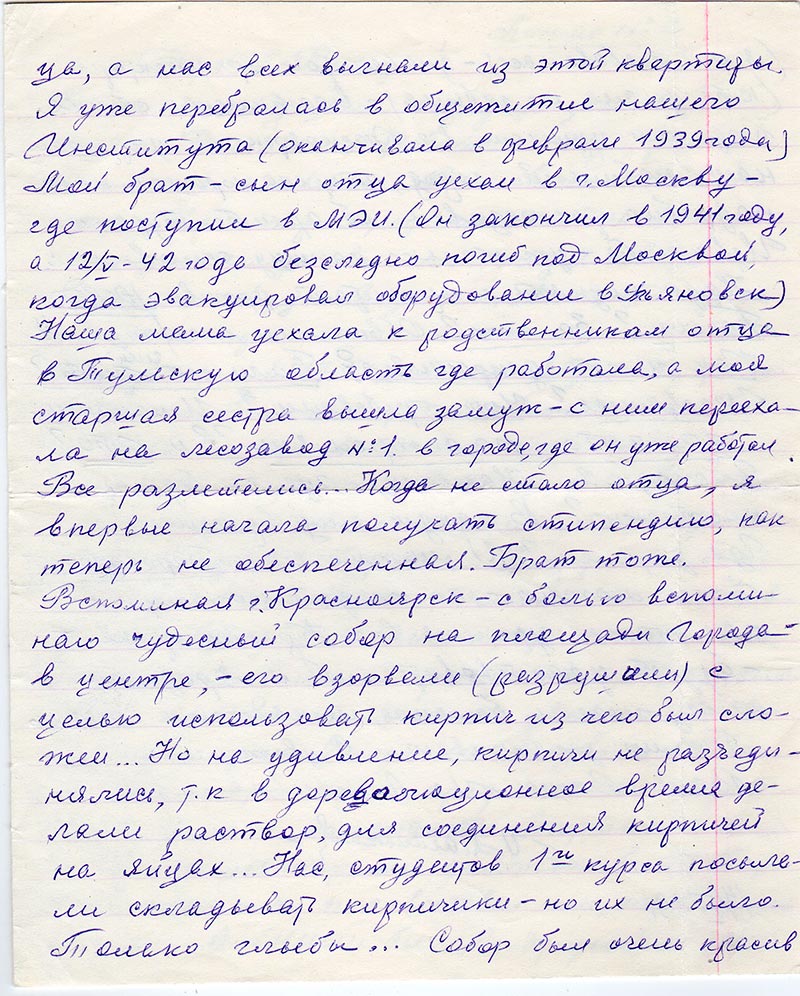 ца, а нас всех выгнали из этой квартиры.
Я уже перебралась в общежитие нашего
Института (оканчивала в феврале 1939 года)
Мой брат – сын отца уехал в г. Москву –
где поступил в МЭИ. (Он закончил в 1941 году,
а 12/V – 42 года безследно погиб под Москвой,
когда эвакуировал оборудование в Ульяновск)
Наша мама уехала к родственникам отца
в Тульскую область где работала, а моя
старшая сестра вышла замуж – с ним перееха-
ла на лесозавод №1. в городе, где он уже работал.
Все разлетелись... Когда не стало отца, я
впервые начала получать стипендию, как
теперь не обеспеченная. Брат тоже.
Вспоминая г. Красноярск – с болью вспоми-
наю чудесный собор на площади Города –
в центре, – его взорвали (разрушали) с
целью использовать кирпич из чего был сло-
жен... Но на удивление, кирпичи не разъеди-
нялись, т.к в дореволюционное время де-
лали раствор, для соединения кирпичей
на яйцах... Нас, студентов 1го курса посыла-
ли складывать кирпичики – но их не было.
Только глыбы... Собор был очень красив